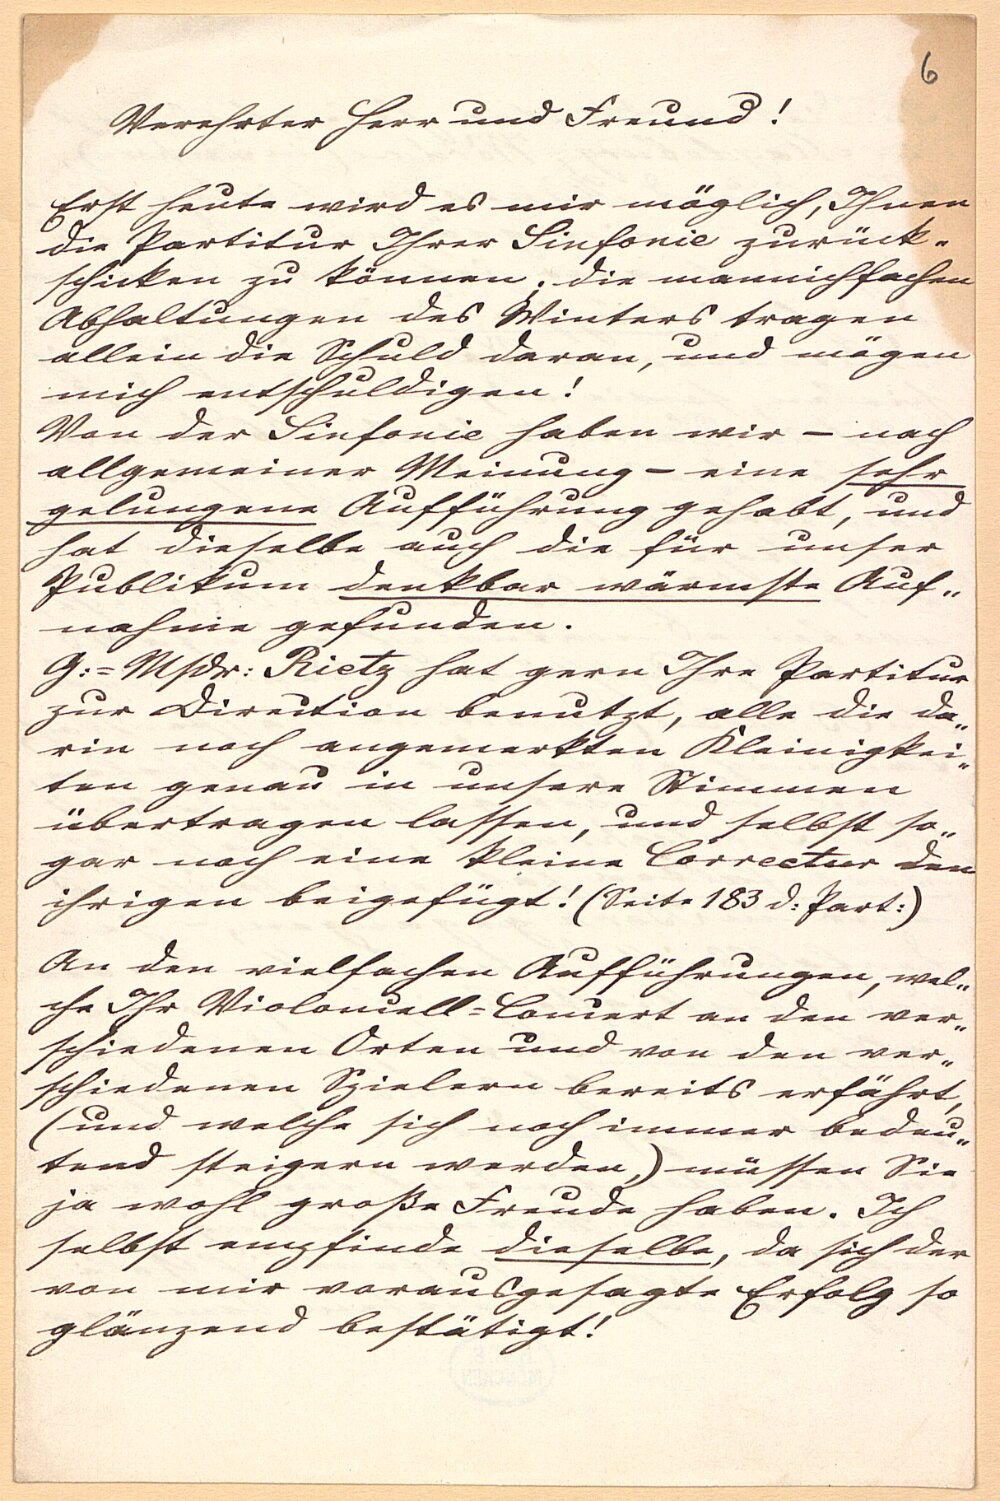 6
Verehrter Herr und Freund!
Erst heute wird es mir möglich, Ihnen
die Partitur Ihrer Sinfonie zurück-
schicken zu können; die mannichfachen
Abhaltungen des Winters tragen
allein die Schuld daran, und mögen
mich entschuldigen!
Von der Sinfonie haben wir – nach
allgemeiner Meinung – eine sehr
gelungene Aufführung gehabt, und
hat dieselbe auch die für unser
Publikum denkbar wärmste Auf-
nahme gefunden.
G:= Mſdr: Rietz hat gern Ihre Partitur
zur Direction benutzt, alle die da-
rin noch angemerkten Kleinigkei-
ten genau in unsere Stimmen
übertragen lassen, und selbst so-
gar noch eine kleine Correctur den
ihrigen beigefügt! (Seite 183 d: Part:)
An den vielfachen Aufführungen, wel-
che Ihr Violoncell-Concert an den ver-
schiedenen Orten und von den ver-
schiedenen Spielern bereits erfährt,
(und welche sich noch immer bedeu-
tend steigern werden,) müssen Sie
ja wohl große Freude haben. Ich
selbst empfinde dieselbe, da sich der
von mir vorausgesagte Erfolg so
glänzend bestätigt!